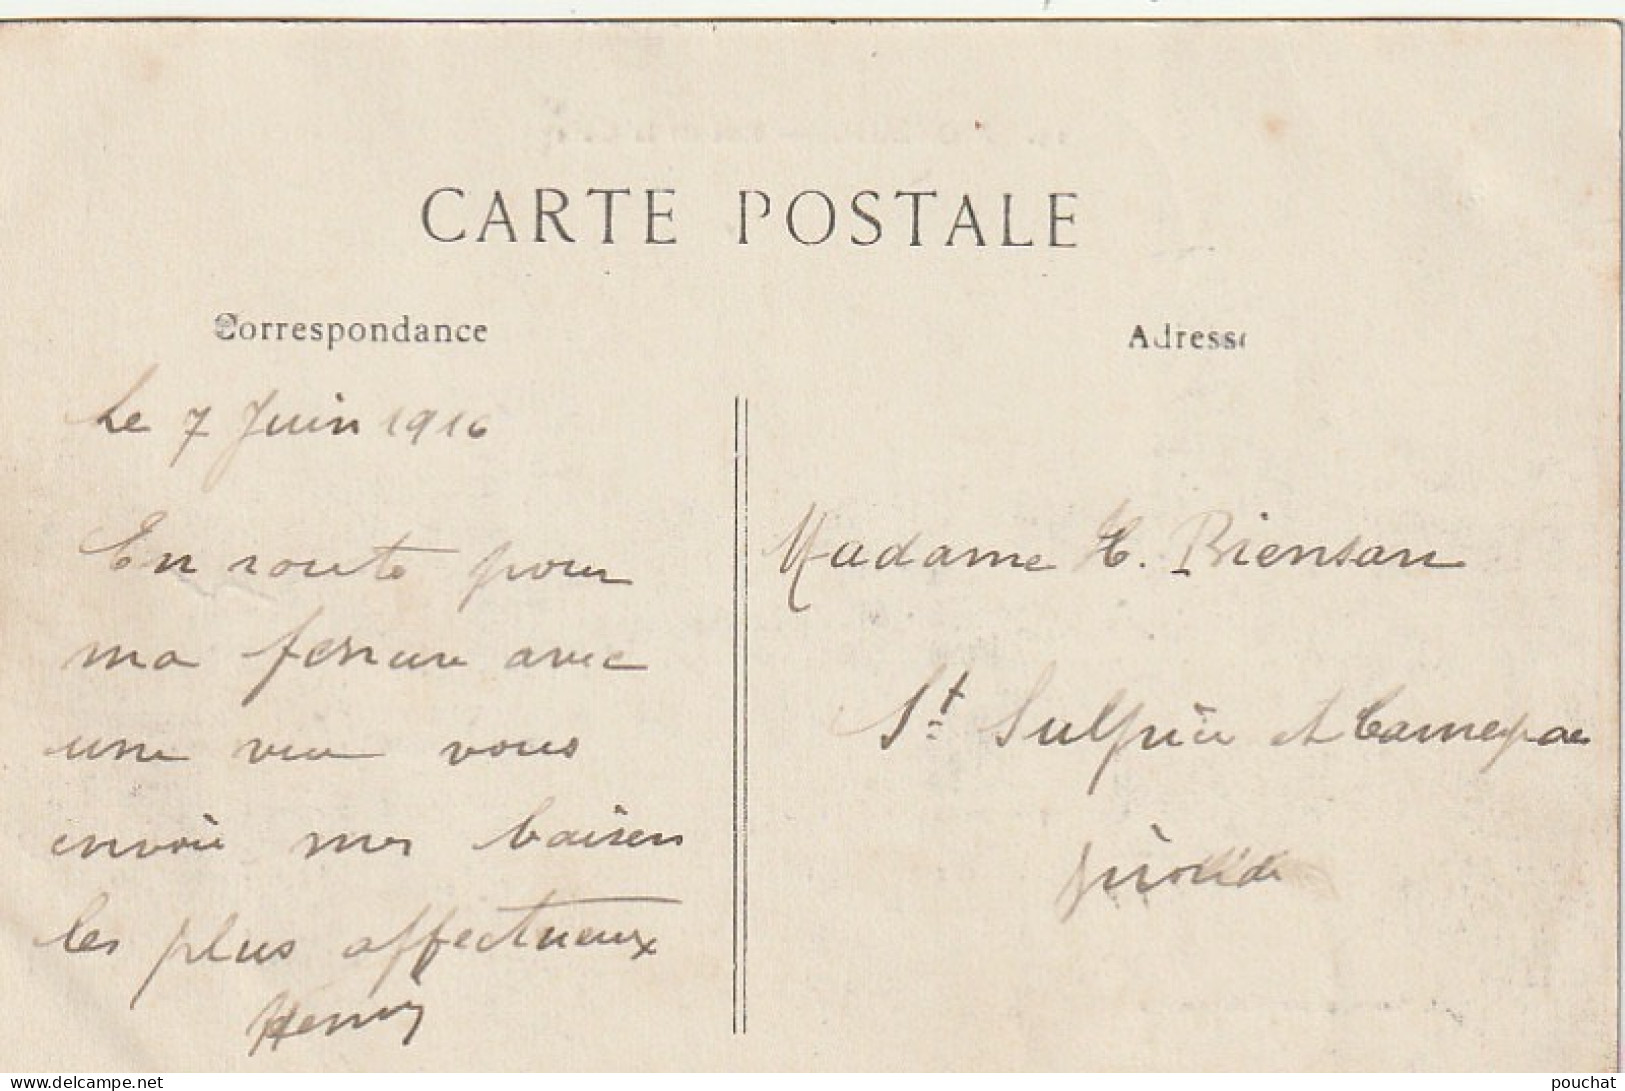 CARTE POSTALE
Correspondance
Adresse
Le 7 Juin 1916
En route pour
ma ferme avec
une vue vous
envoie mes baisers
les plus affectueux
Henry
Madame H. Biensan
St Sulpice et Cameyrac
Gironde
delcampe.net
pouchat